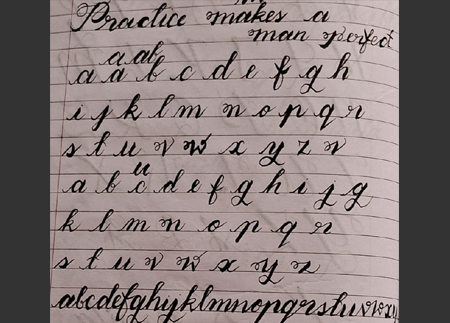 Practice makes a
man perfect
a ab
a a b c d e f g h
i j k l m n o p q r
s t u v w x y z v
u
a b c d e f g h i j g
k l m n o p q r
s t u v w x y z
abcdefghyklmnopqrstuvwxy